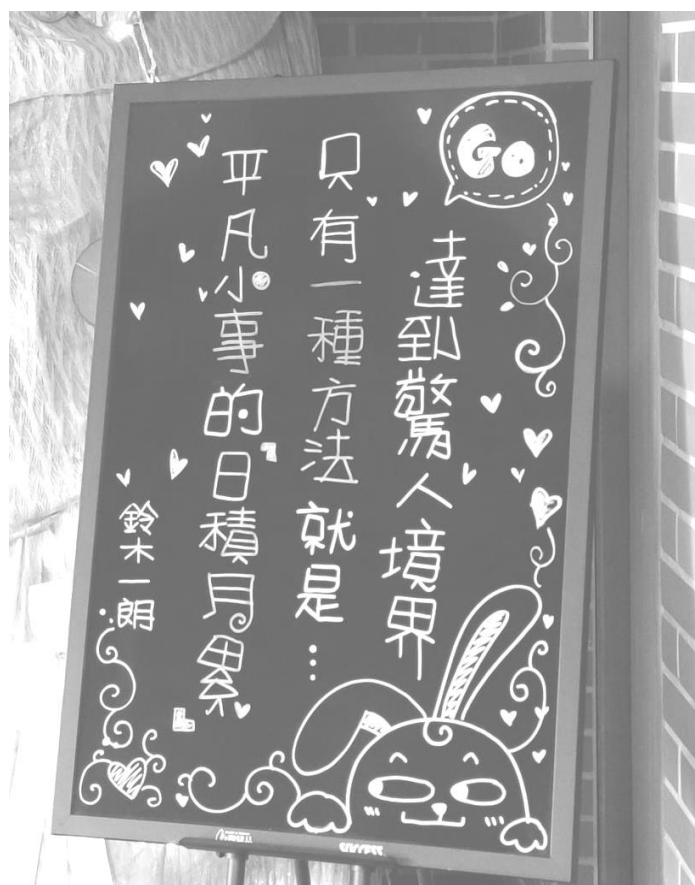 Go
達到驚人境界
只有一種方法就是…
平凡小事的日積月累
鈴木一朗